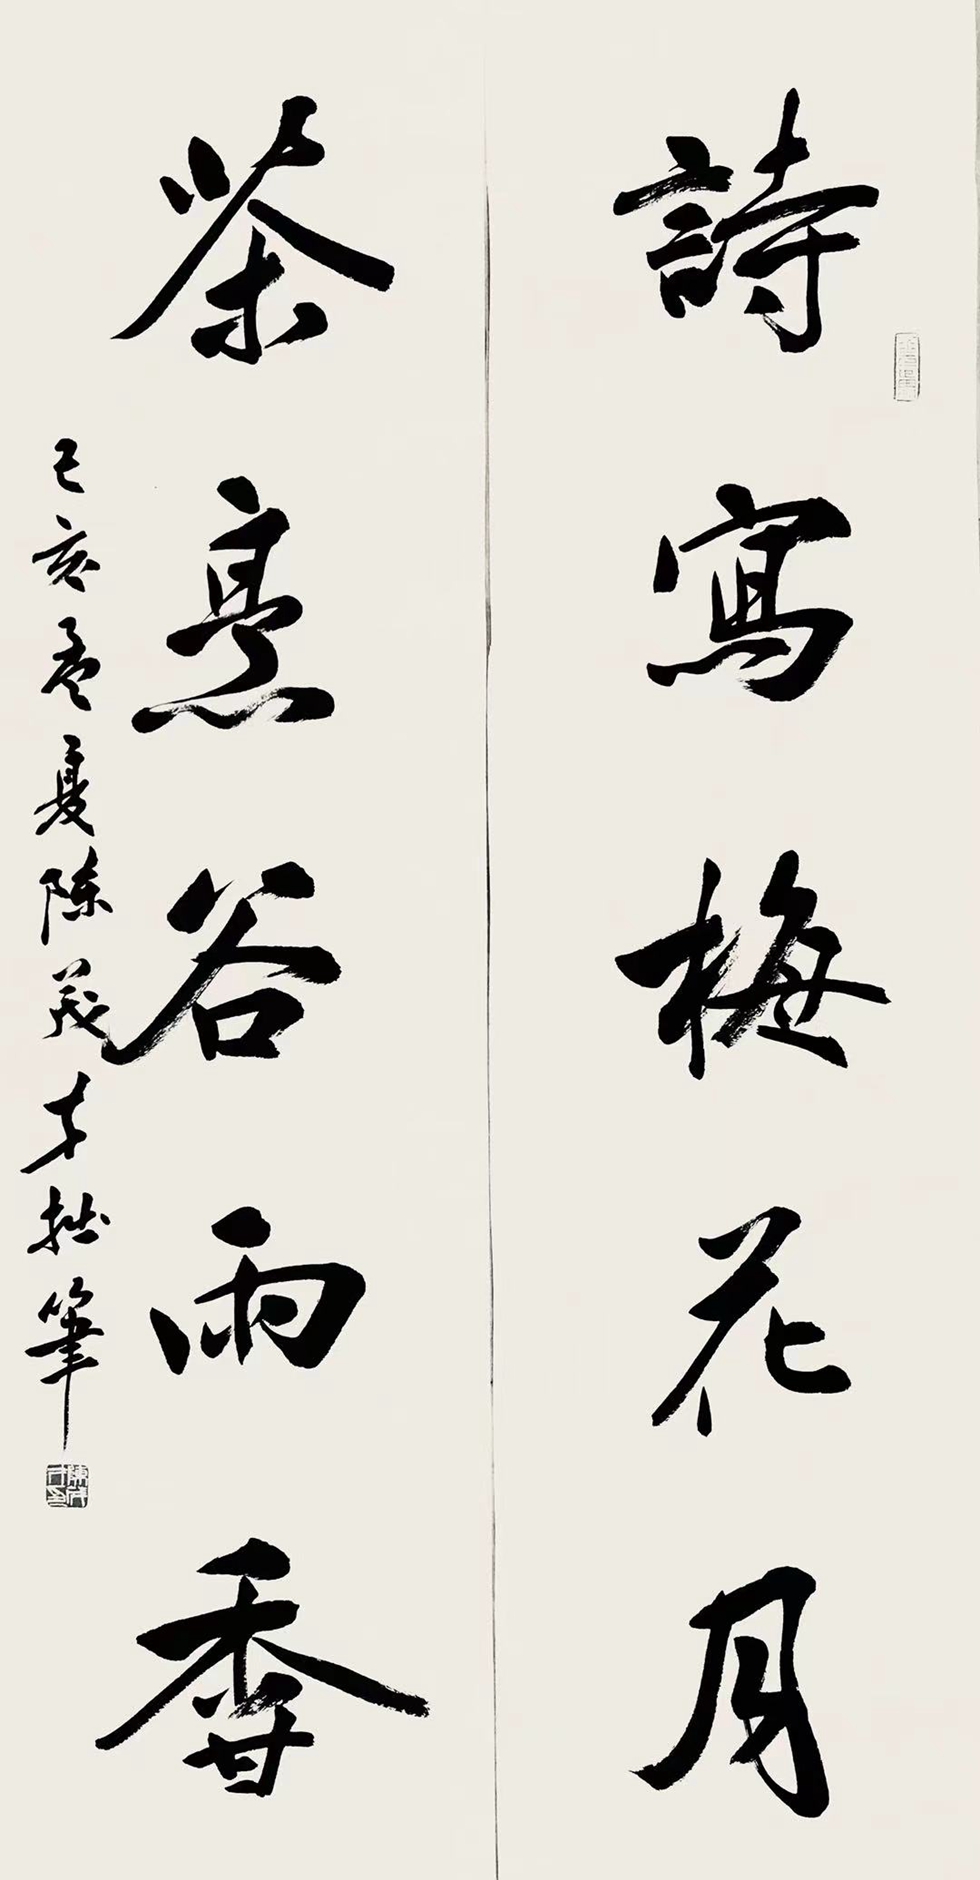 詩寫梅花月
茶烹谷雨香
己亥孟夏陳茂才拙筆